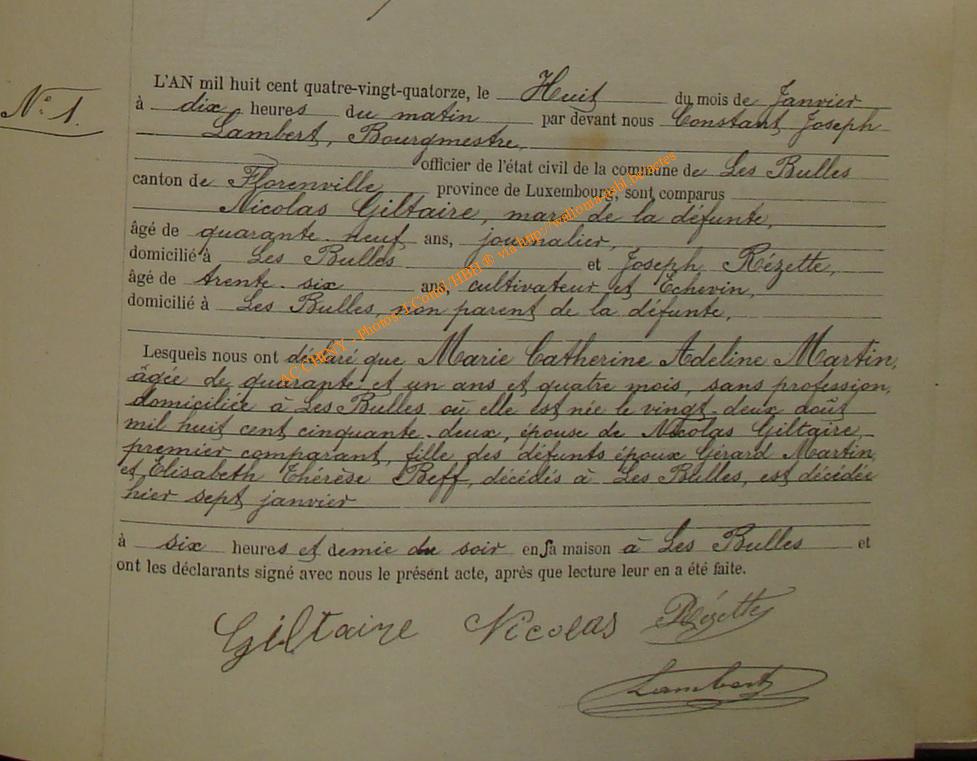 N° 1.
L'AN mil huit cent quatre-vingt-quatorze, le Huit du mois de Janvier
à dix heures du matin par devant nous Constant Joseph
Lambert, Bourgmestre,
officier de l'état civil de la commune de Les Bulles
canton de Florenville province de Luxembourg, sont comparus
Nicolas Giltaire, mari de la défunte,
âgé de quarante neuf ans, journalier,
domicilié à Les Bulles et Joseph Rézette,
âgé de trente-six ans, cultivateur et Echevin,
domicilié à Les Bulles, non parent de la défunte,
Lesquels nous ont déclaré que Marie Catherine Adeline Martin,
âgée de quarante et un ans et quatre mois, sans profession,
domiciliée à Les Bulles où elle est née le vingt-deux août
mil huit cent cinquante-deux, épouse de Nicolas Giltaire,
premier comparant, fille des défunts époux Gérard Martin
et Elisabeth Thérèse Beff, décédés à Les Bulles, est décédée
hier sept janvier
à six heures et demie du soir en sa maison à Les Bulles et
ont les déclarants signé avec nous le présent acte, après que lecture leur en a été faite.
Giltaire Nicolas Rézette
Lambert
AC CHINY - Photos J.Comb/HBH ® via http://wallonia.ashl.benetes